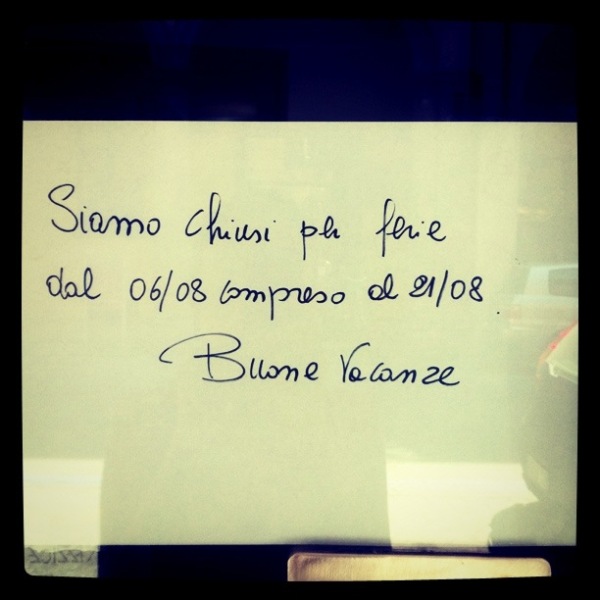 Siamo chiusi per ferie
dal 06/08 compreso al 21/08.
Buone Vacanze